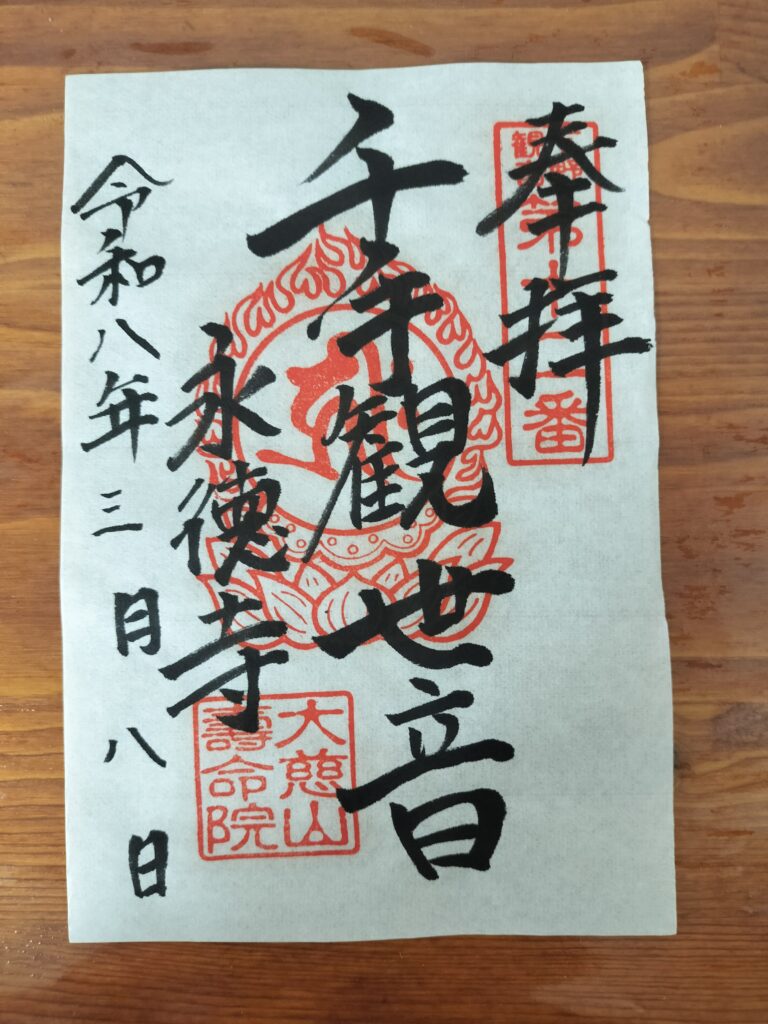 奉拝
第 番
千手観世音
永徳寺
大慈山
壽命院
令和八年三月八日